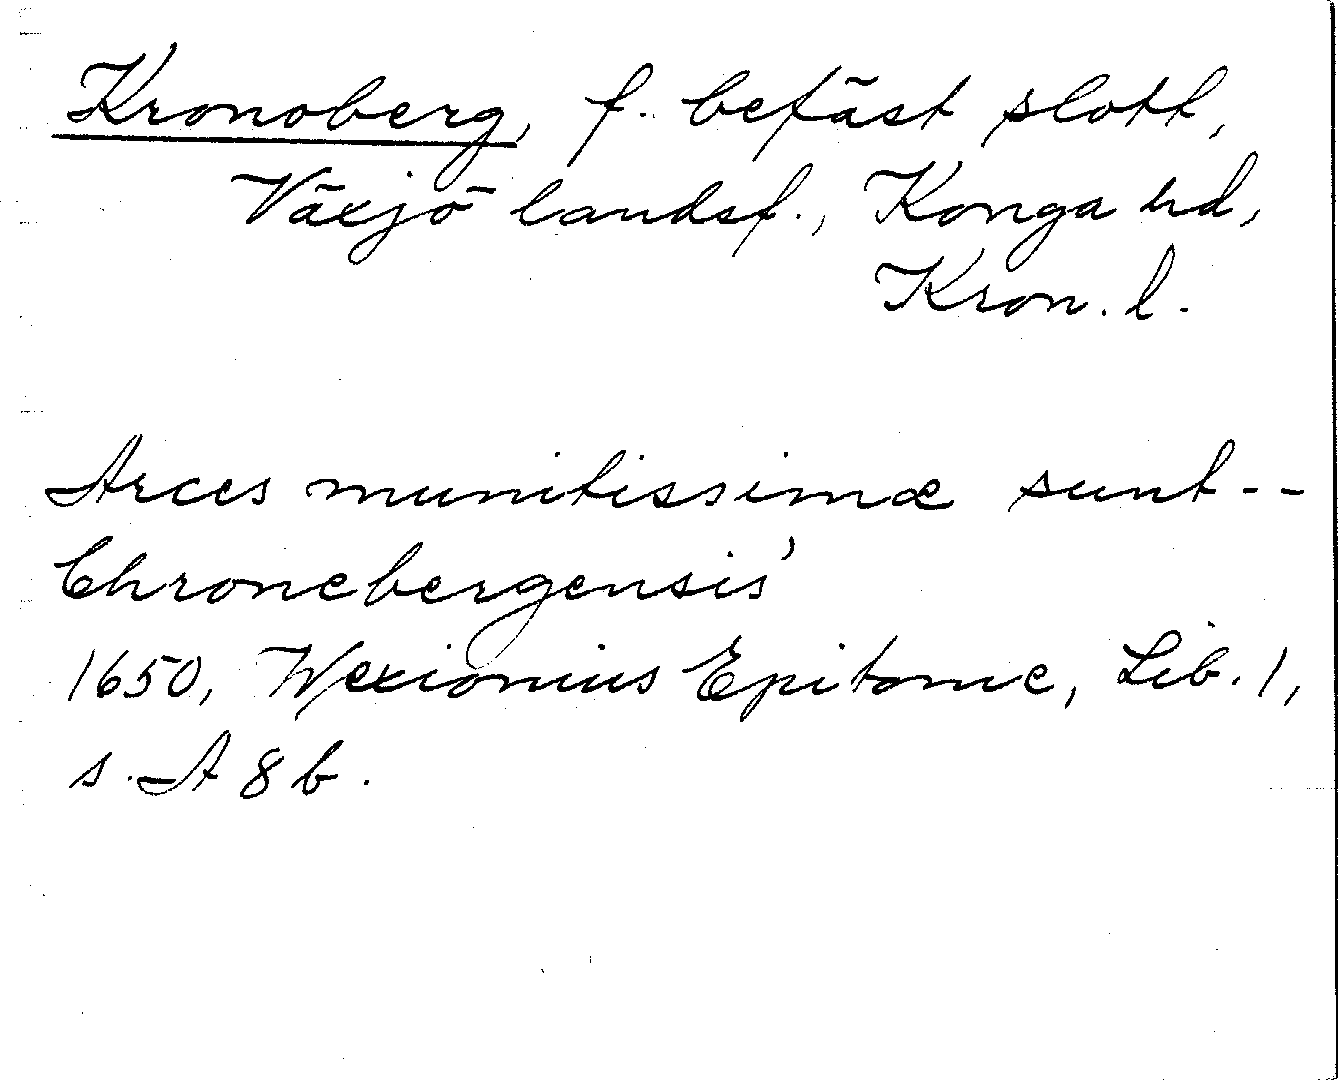 Kronoberg, f. befäst slott,
Växjö landsf., Konga hd,
Kron. l.
Arces munitissimæ sunt --
Chronebergensis'
1650, Wexionius Epitome, Lib. 1,
s. A 8 b.